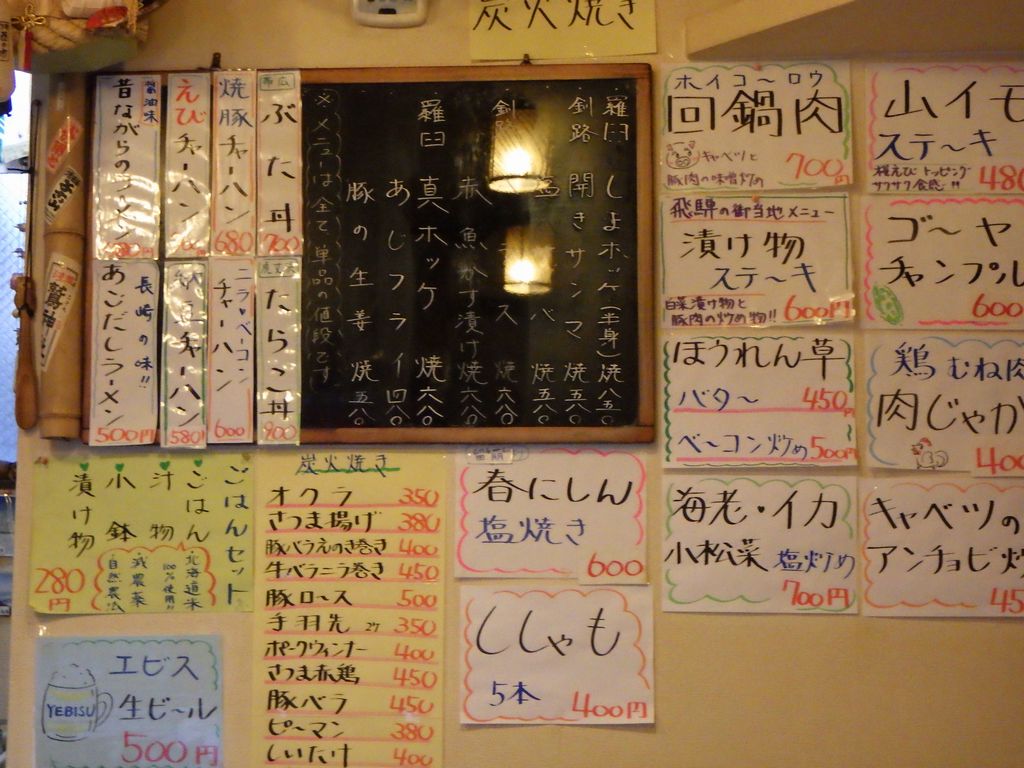 炭火焼き
帯広
ぶた丼
700
焼豚チャーハン
680
えびチャーハン
醤油味
昔ながらのラーメン
たらこ丼
900
ニラ・ベーコン
チャーハン
600
納豆チャーハン
580
長崎の味!!
あごだしラーメン
500円
羅臼 しまホッケ(半身)焼 八五〇
釧路 開きサンマ 焼 五八〇
塩サバ 焼 五八〇
赤魚かす漬け焼 六八〇
羅臼 真ホッケ 焼 六八〇
あじフライ 四八〇
豚の生姜焼 五八〇
※メニューは全て、単品の値段です
ホイコーロウ
回鍋肉
キャベツと
豚肉の味噌炒め
700円
山イモ
ステーキ
桜えびトッピング
サクサク食感!!
480
飛騨の御当地メニュー
漬け物
ステーキ
白菜漬け物と
豚肉の炒め物!!
600円
ゴーヤ
チャンプル
600
ほうれん草
バター 450
ベーコン炒め 500円
鶏むね肉
肉じゃが
400
海老・イカ
小松菜 塩炒め
700円
キャベツの
アンチョビ炒
45
ごはんセット
ごはん
汁物
小鉢
漬け物
北海道米
100%使用!!
減農薬
自然農法
280円
炭火焼き
オクラ 350
さつま揚げ 380
豚バラえのき巻き 400
牛バラニラ巻き 450
豚ロース 500
手羽先 2ケ 350
ポークウィンナー 400
さつま赤鶏 450
豚バラ 450
ピーマン 380
しいたけ 400
春にしん
塩焼き
600
ししゃも
5本
400円
YEBISU
エビス
生ビール
500円